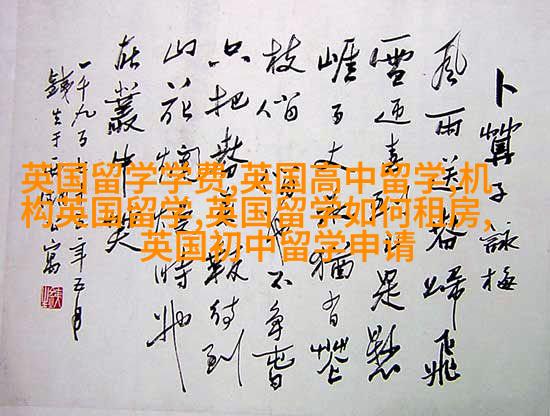 卜算子詠梅
風雨送春歸飛
雪迎春到已是懸
崖百丈冰猶有花
枝俏俏也不爭春
只把春来報待到
山花爛漫時她
在叢中笑
一千九百年五月
英国留学学费,英国高中留学,机
构英国留学,英国留学如何租房,
英国初中留学申请